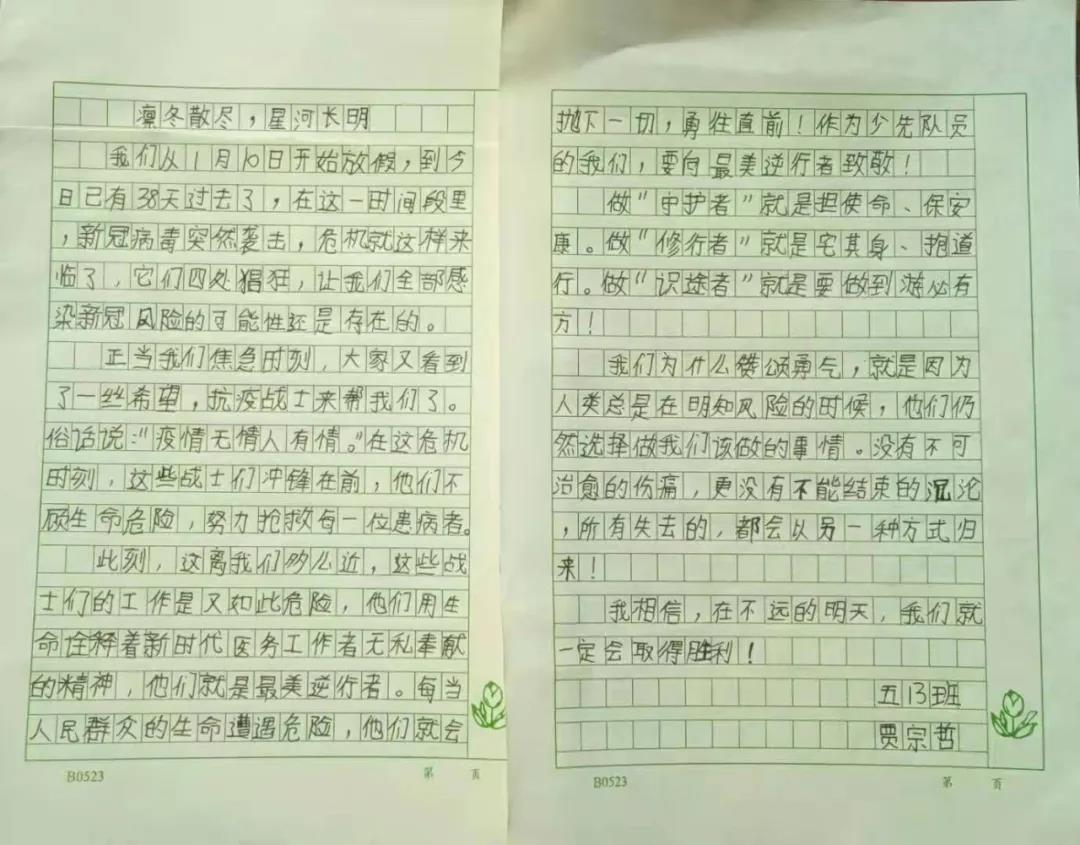 凛冬散尽，星河长明
我们从1月10日开始放假，到今
日已有38天过去了，在这一时间段里
，新冠病毒突然袭击，危机就这样来
临了，它们四处猖狂，让我们全部感
染新冠风险的可能性还是存在的。
正当我们焦急时刻，大家又看到
了一丝希望，抗疫战士来帮我们了。
俗话说：“疫情无情人有情。”在这危机
时刻，这些战士们冲锋在前，他们不
顾生命危险，努力抢救每一位患病者。
此刻，这离我们多么近，这些战
士们的工作是又如此危险，他们用生
命诠释着新时代医务工作者无私奉献
的精神，他们就是最美逆行者。每当
人民群众的生命遭遇危险，他们就会
B0523 第 页
抛下一切，勇往直前！作为少先队员
的我们，要向最美逆行者致敬！
做“守护者”就是担使命、保安
康。做“修行者”就是宅其身、抱道
行。做“识途者”就是要做到游必有
方！
我们为什么赞颂勇气，就是因为
人类总是在明知风险的时候，他们仍
然选择做我们该做的事情。没有不可
治愈的伤痛，更没有不能结束的沉沦
，所有失去的，都会以另一种方式归
来！
我相信，在不远的明天，我们就
一定会取得胜利！
五13班
贾宗哲
B0523 第 页